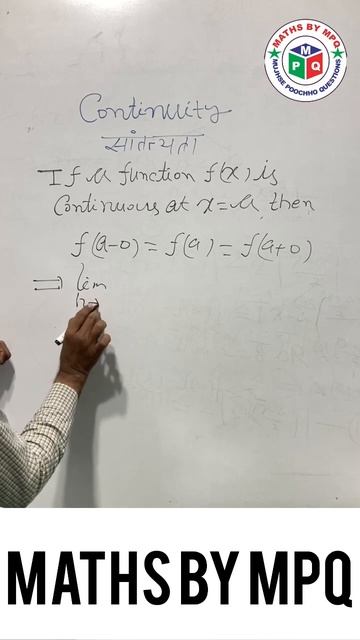 MATHS BY MPQ
M
P Q
MUJHSE POOCHHO QUESTIONS
Continuity
सांतत्यता
If a function f(x) is
Continuous at x=a, then
f(a-0) = f(a) = f(a+0)
⇒ lim
h→
MATHS BY MPQ